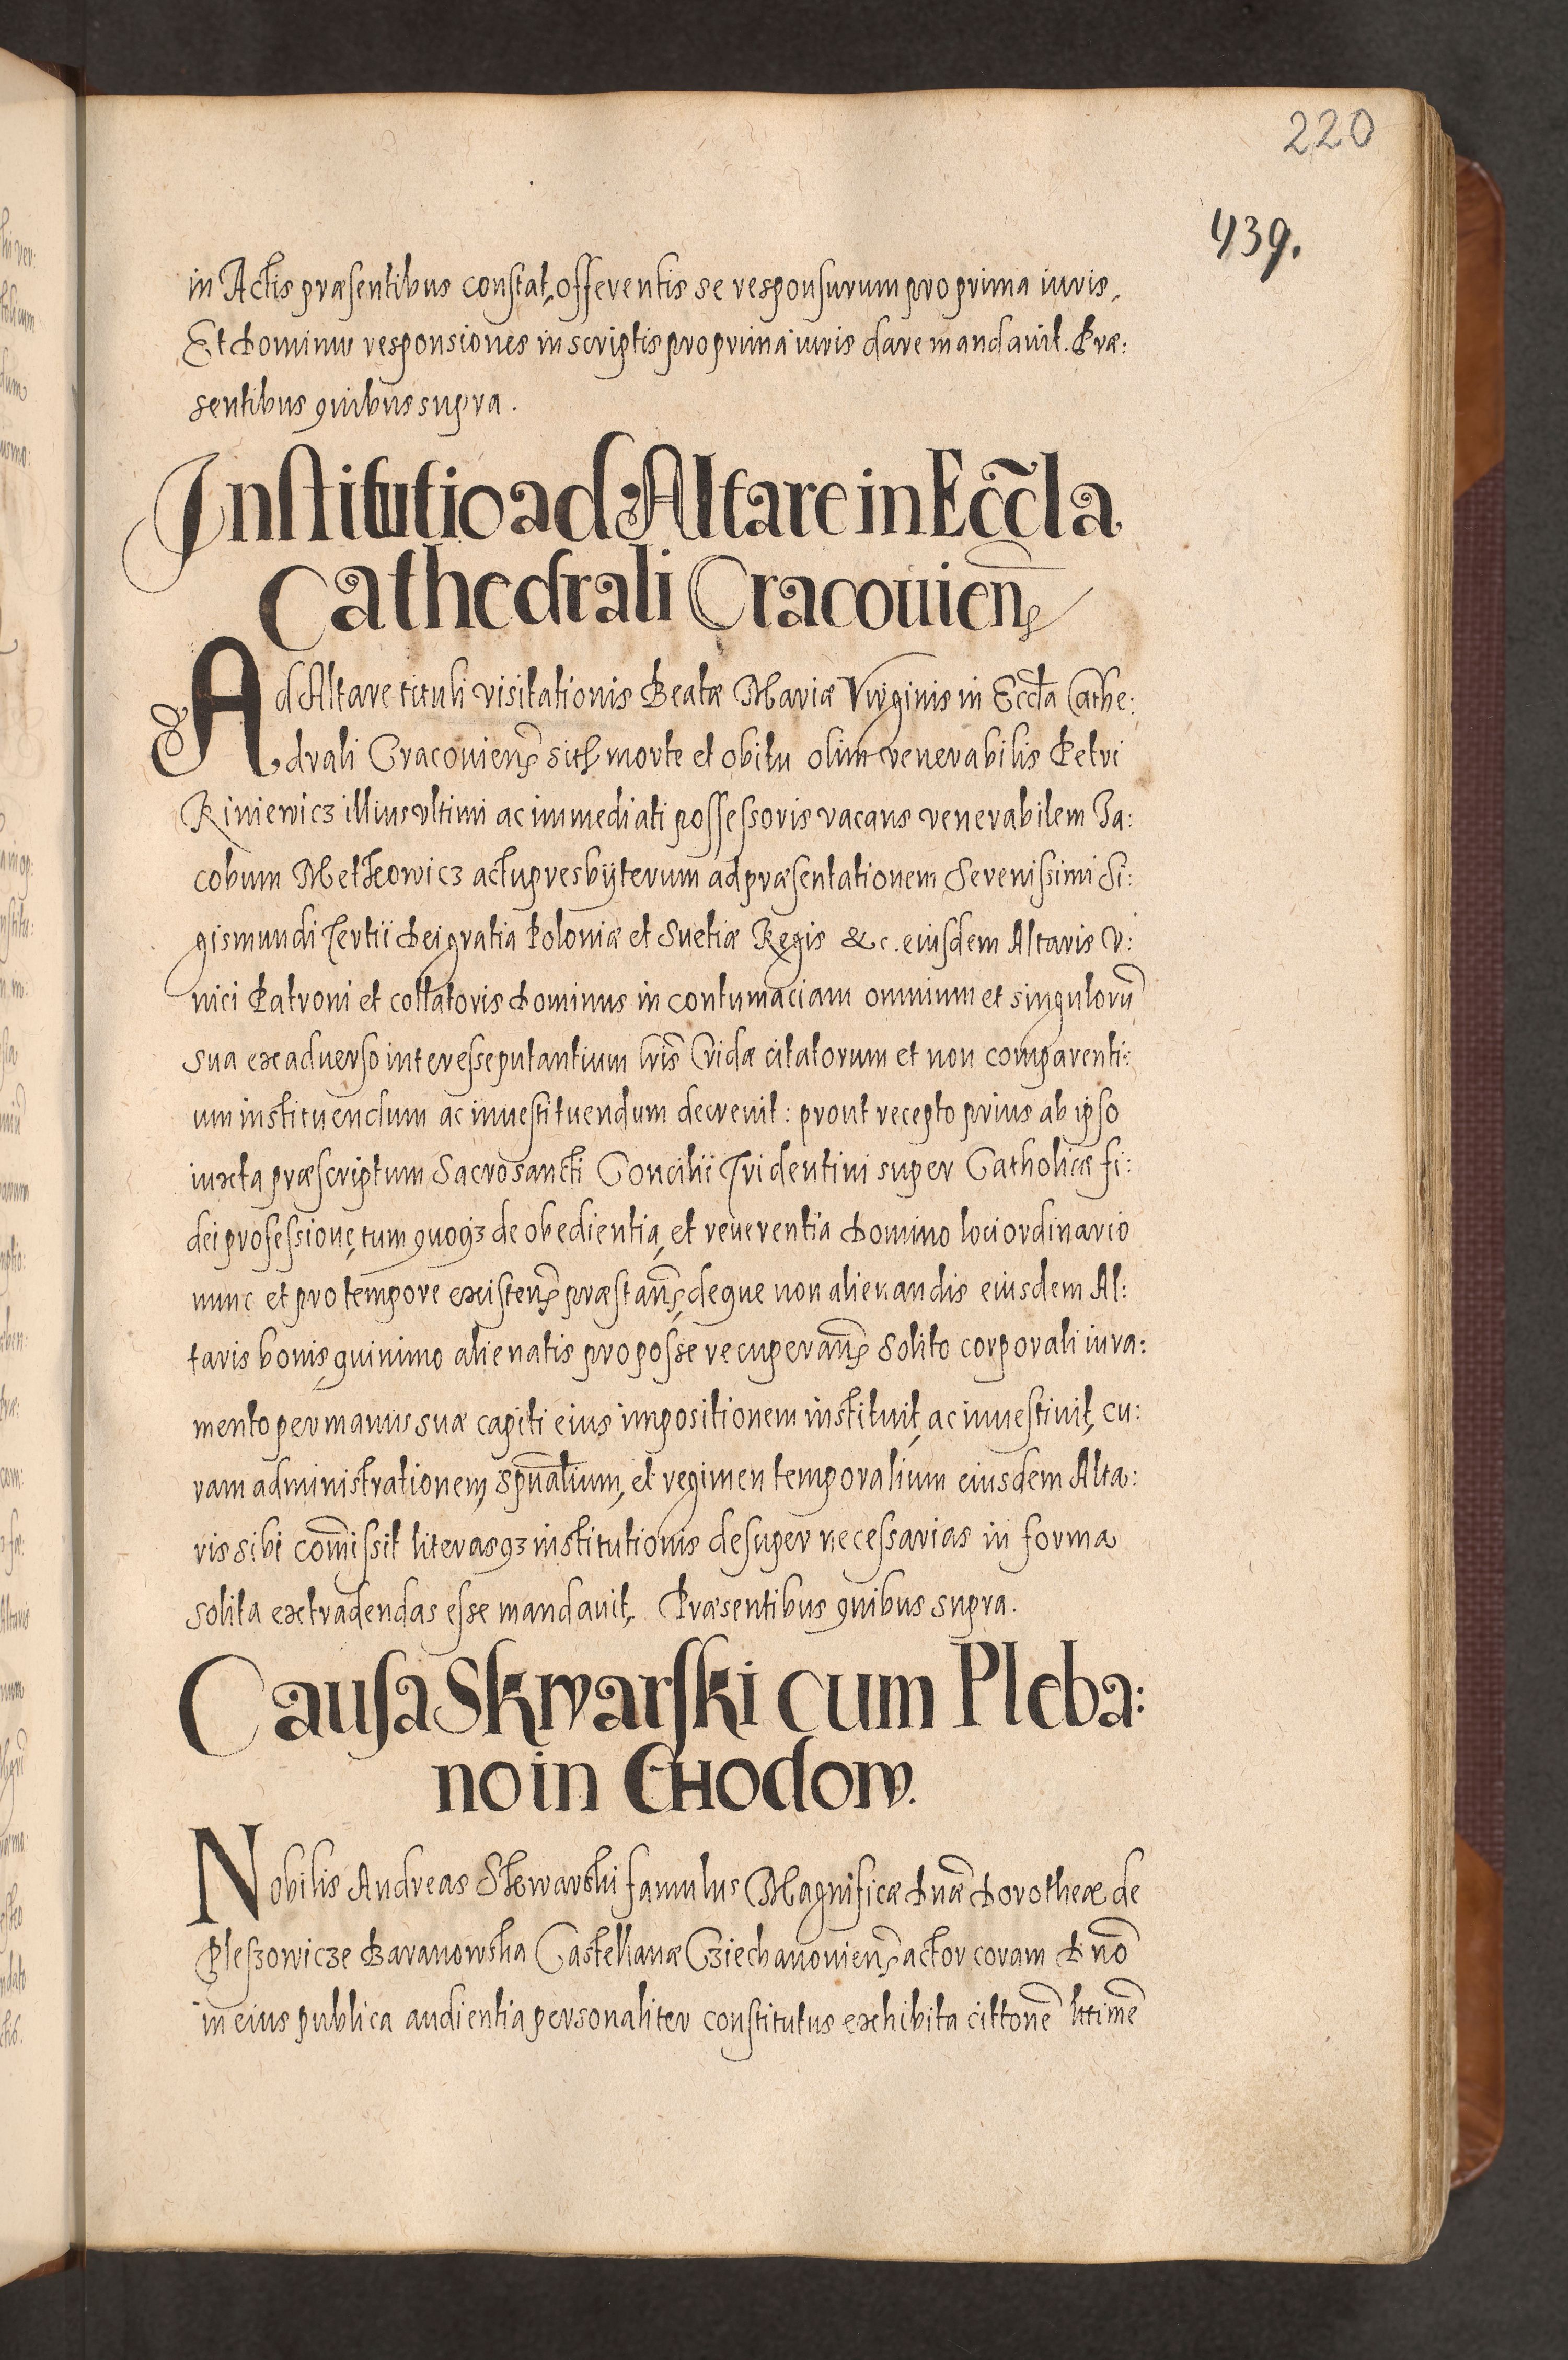 220
439.
in Actis præsentibus constat, offerentis se responsurum pro prima iuris.
Et Dominus responsiones in scriptis pro prima iuris dare mandavit. Præ:
sentibus quibus supra.
Institutio ad Altare in Eccl̃a
Cathedrali Cracouien̄
Ad Altare tituli visitationis Beatæ Mariæ Virginis in Eccl̃a Cathe:
drali Cracouien̄ sitũ morte et obitu olim venerabilis Petri
Riniewicz illius vltimi ac immediati possessoris vacans venerabilem Ja:
cobum Metkowicz actu presbÿterum ad præsentationem Serenissimi Si:
gismundi Tertii Dei gratia Poloniæ et Suetiæ Regis &c. eiusdem Altaris V:
nici Patroni et collatoris Dominus in contumaciam omnium et singulorũ
sua ex aduerso interesse putantium lris Cridæ citatorum et non comparenti:
um instituendum ac inuestituendum decreuit: prout recepto prius ab ipso
iuxta præscriptum Sacrosancti Concilii Tridentini super Catholicæ fi:
dei professione, tum quoqз de obedientia, et reuerentia Domino loci ordinario
nunc et pro tempore existen̄ præstan̄, deque non alienandis eiusdem Al:
taris bonis, quinimo alienatis pro posse recuperan̄ solito corporali iura:
mento per manus suæ capiti eius impositionem instituit, ac inuestiuit, cu:
ram administrationem, spũalium, et regimen temporalium eiusdem Alta:
ris sibi com̃issit literasqз institutionis desuper necessarias in forma
solita extradendas esse mandauit. Præsentibus quibus supra.
Causa Skwarski cum Pleba:
no in Chodow.
Nobilis Andreas Skwarski famulus Magnificæ Dnæ̃ Dorotheæ de
Pleszowicze Baranowska Castellanæ Cziechanouien̄ actor coram Dnõ
in eius publica audientia personaliter constitutus exhibita cittonẽ lttimẽ